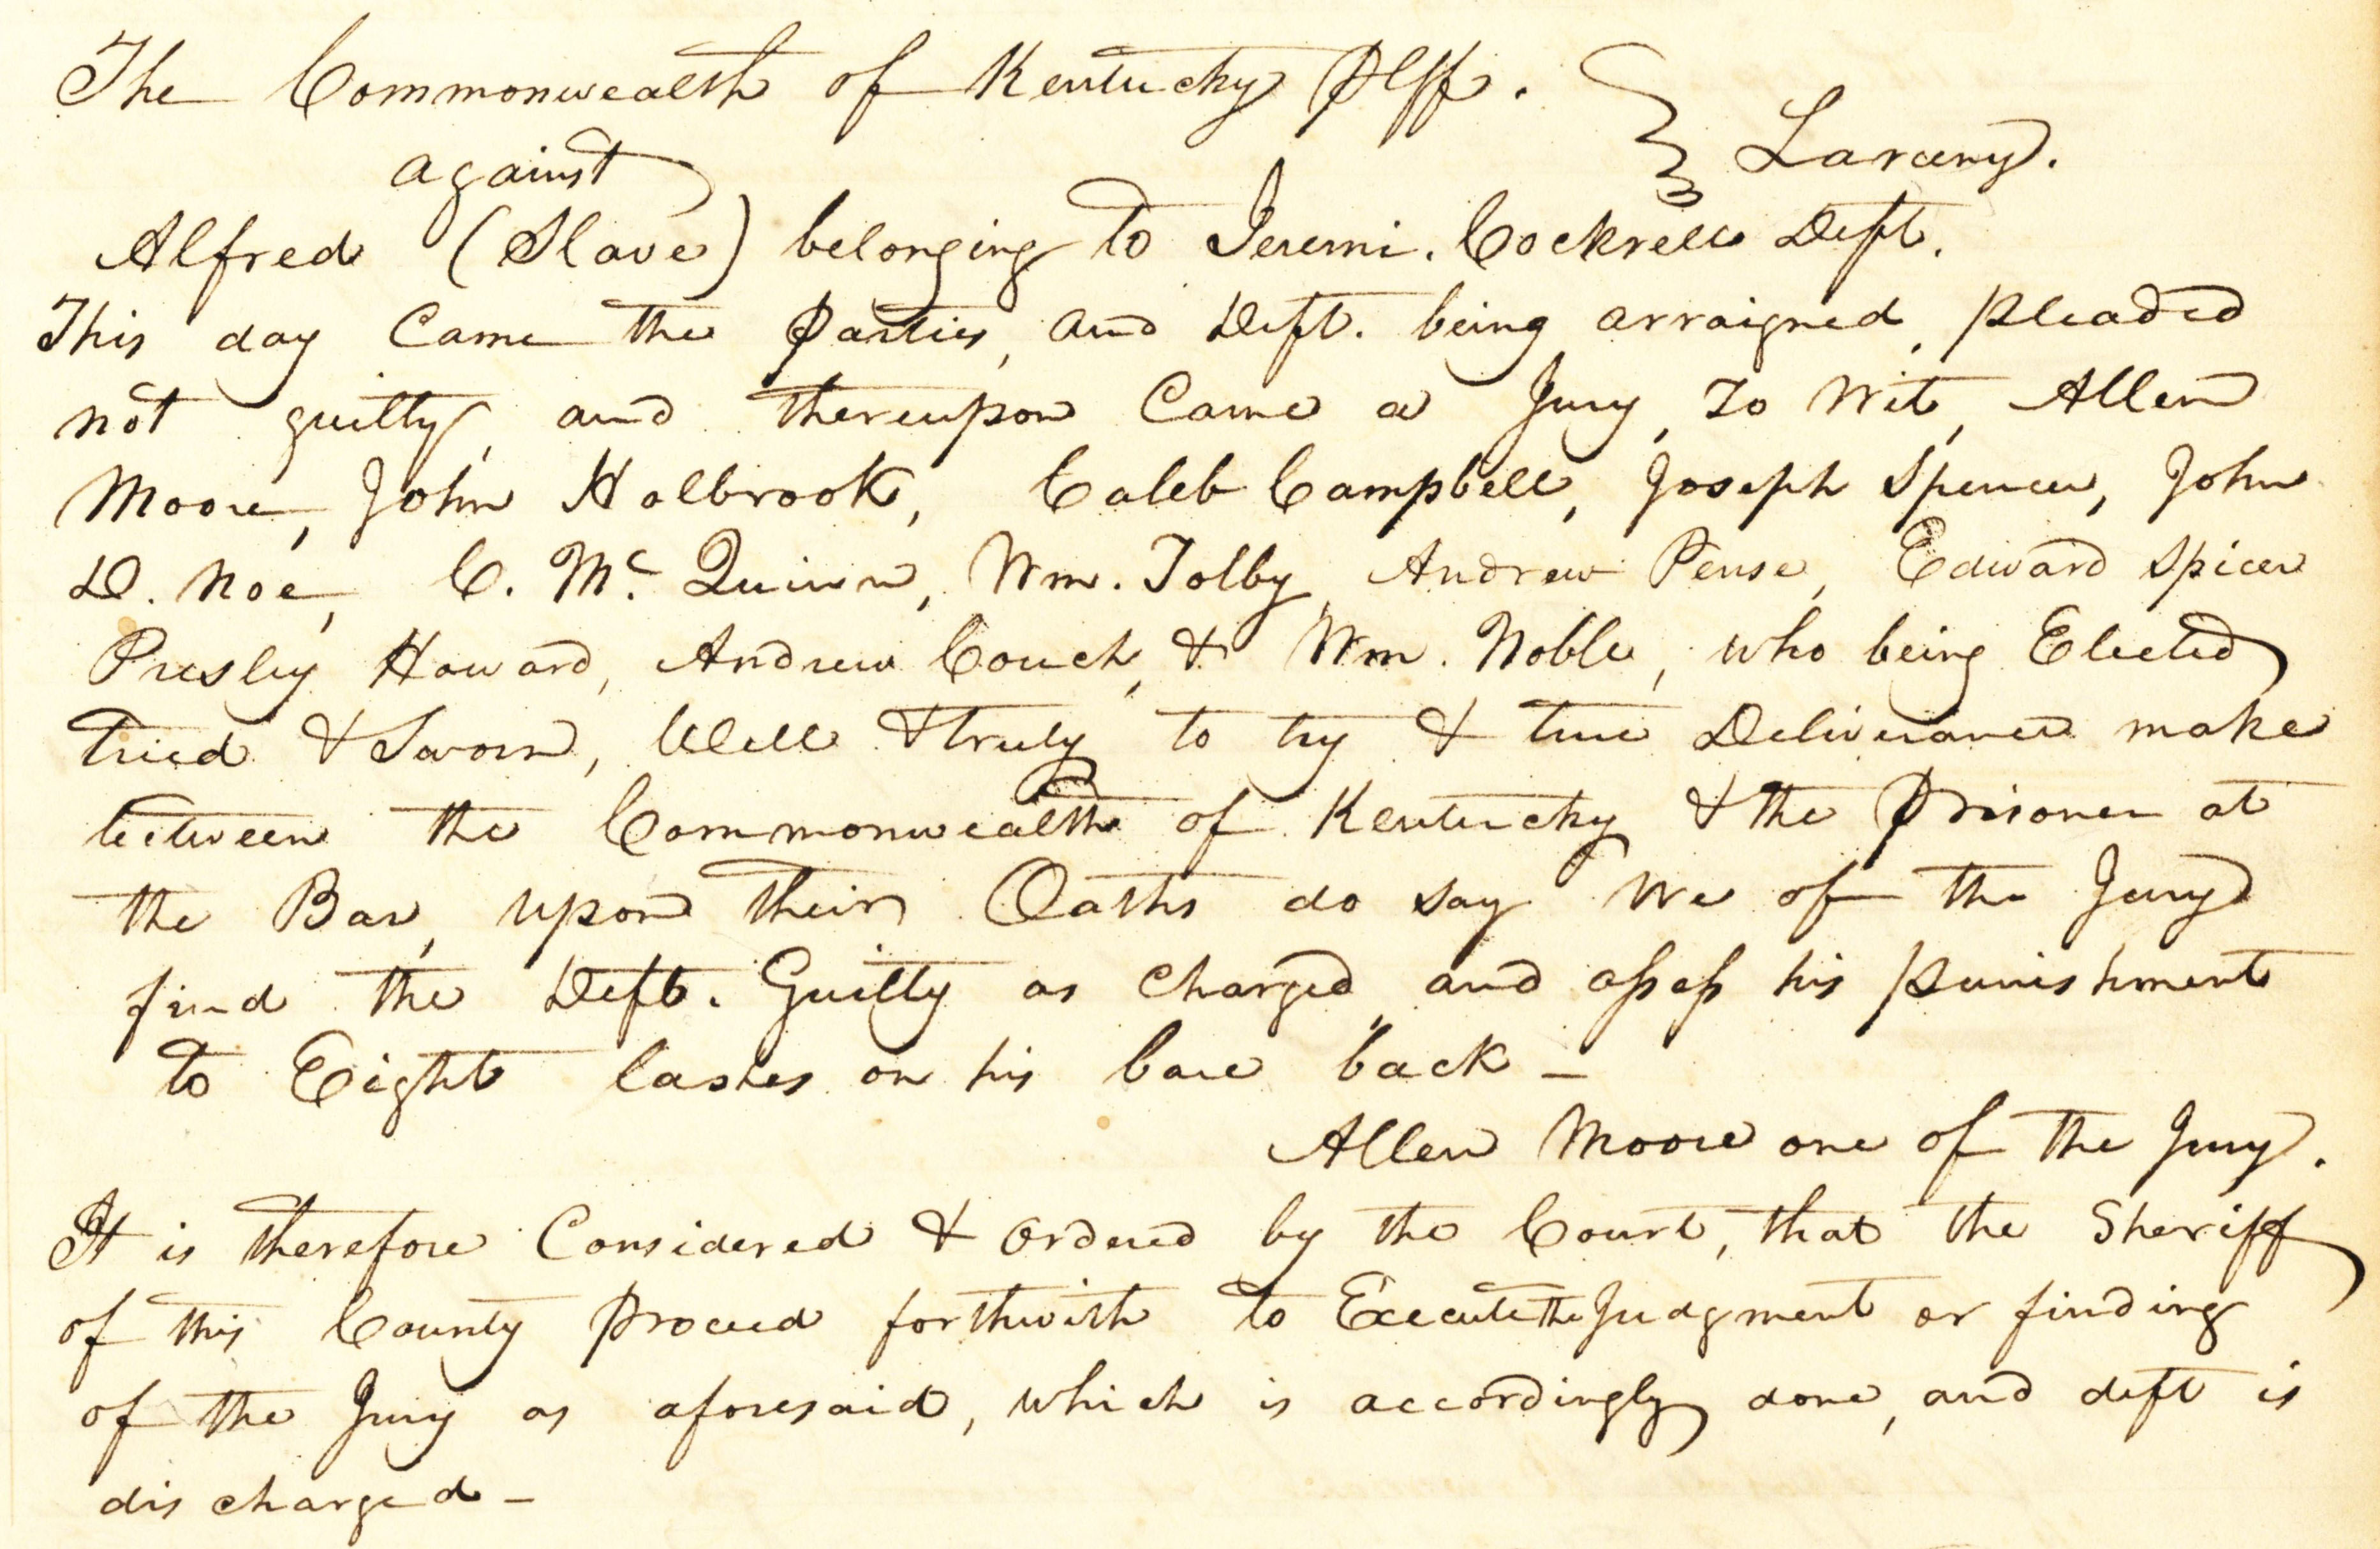 The Commonwealth of Kentucky Plff.
against
Larceny.
Alfred (Slave) belonging to Jeremi. Cockrell Deft.
This day Came the Parties, and Deft. being arraigned, pleaded
not guilty, and thereupon Came a Jury, To Wit, Allen
Moore, John Holbrook, Caleb Campbell, Joseph Spencer, John
D. Noe, C. Mc. Quinn, Wm. Tolby, Andrew Pense, Edward Spicer
Presley Howard, Andrew Couch, & Wm. Noble, who being Elected
tried & Sworn, Well & truly to try & true Deliverance make
between the Commonwealth of Kentucky & the Prisoner at
the Bar, upon their Oaths do say We of the Jury
find the Deft. Guilty as Charged, and assess his punishment
to Eight lashes on his bare back –
Allen Moore one of the Jury.
It is therefore Considered & ordered by the Court, that the Sheriff
of this County proceed forthwith to Execute the Judgment or finding
of the Jury as aforesaid, which is accordingly done, and deft is
discharged –